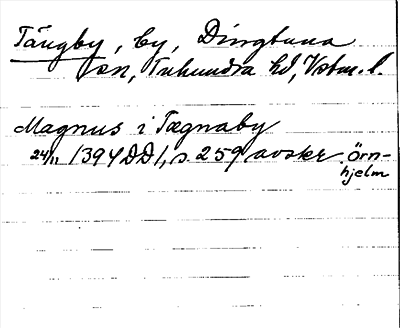 Tängby, by, Dingtuna
sn, Tuhundra hd, Vstm. l.
Magnus i Tægnaby
24/11 1394 DD1, s. 259 avskr. Örn-
hjelm